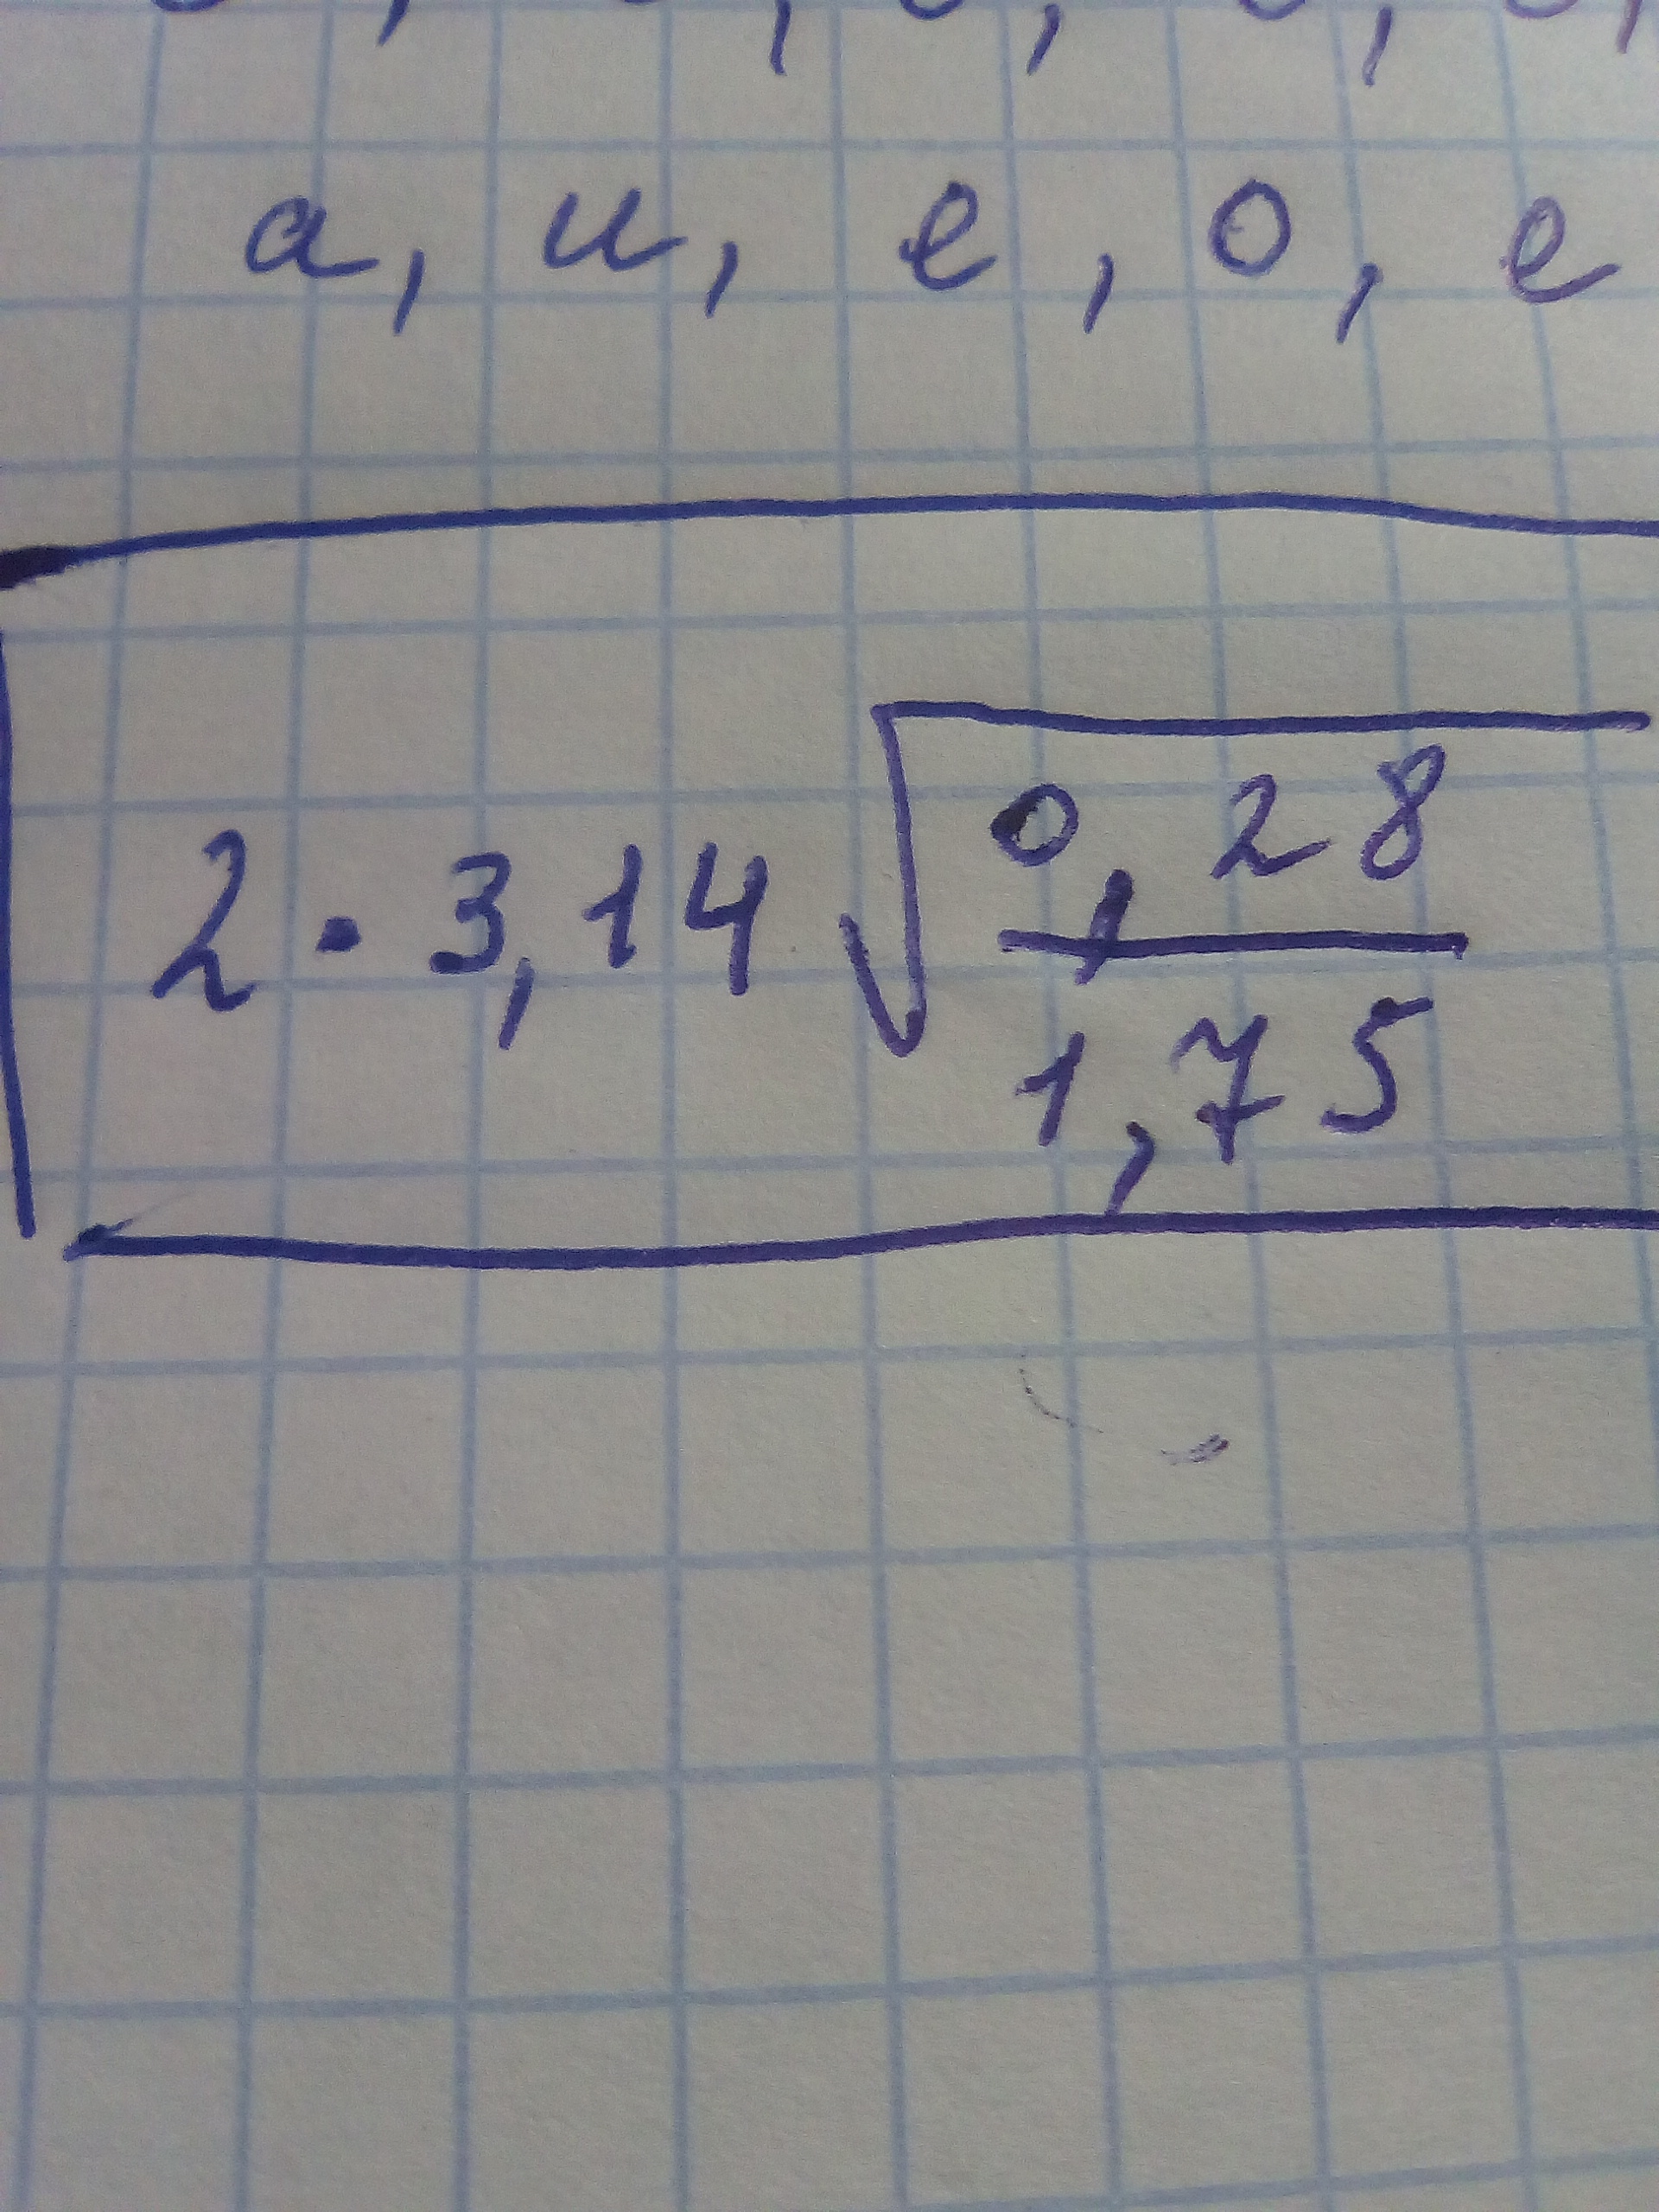 а, и, е, о, е
2 · 3,14 √(0,28 / 1,75)